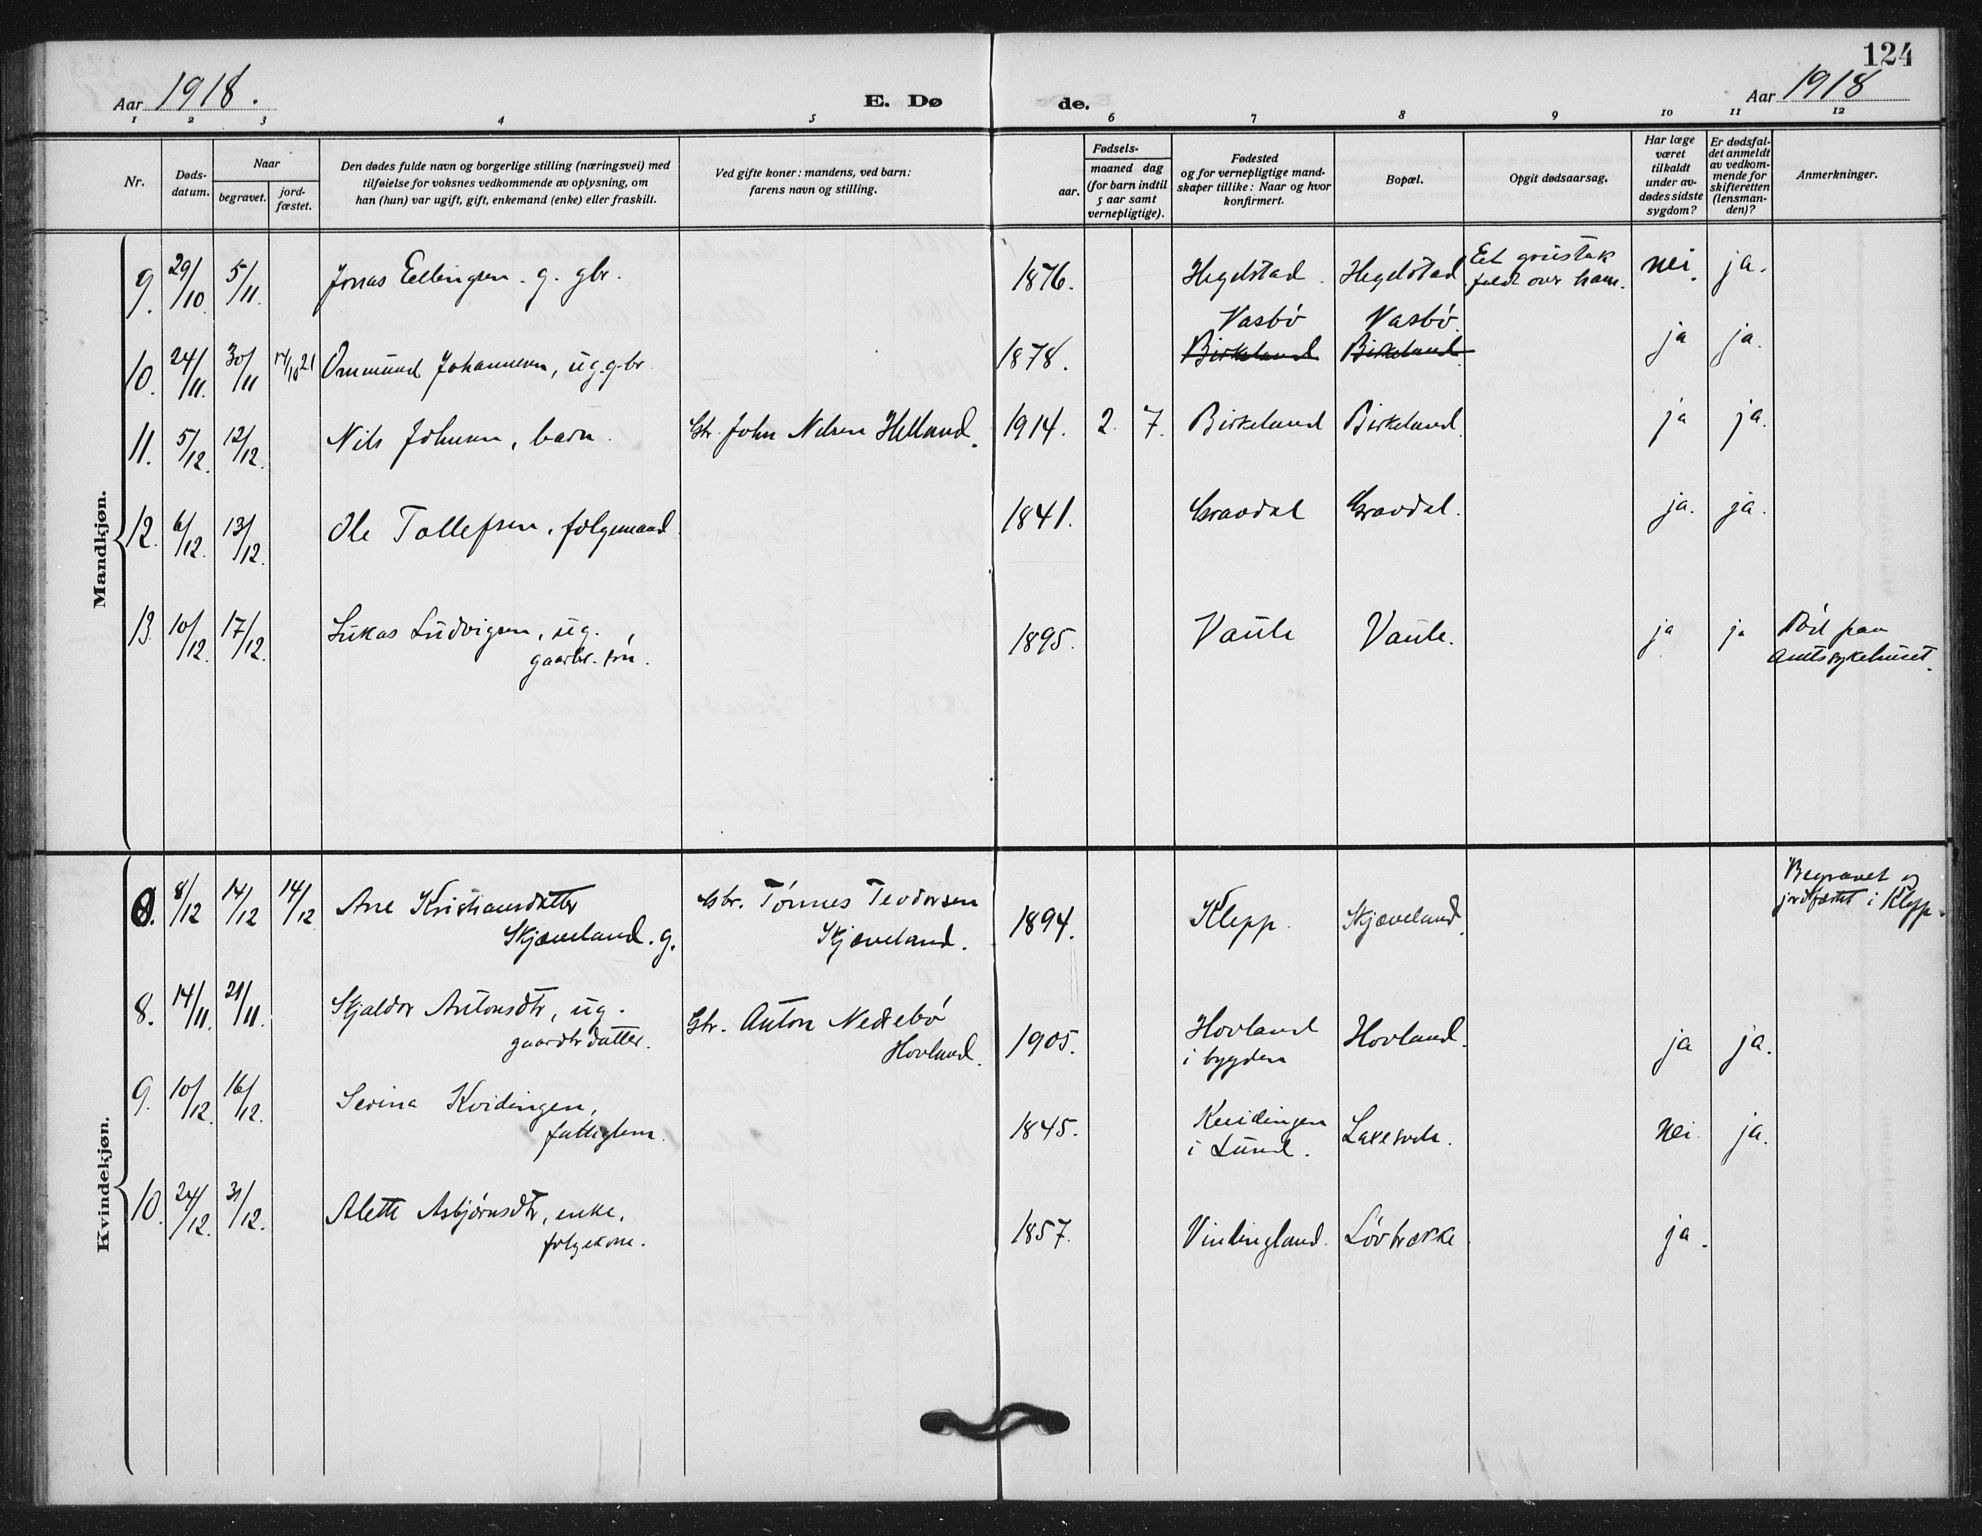 124
Aar 1918. E. Døde. Aar 1918
1 2 3 4 5 6 7 8 9 10 11 12
Nr.
Døds-
datum.
Naar
begravet.
jord-
fæstet.
Den dødes fulde navn og borgerlige stilling (næringsvei) med
tilføielse for voksnes vedkommende av oplysning, om
han (hun) var ugift, gift, enkemand (enke) eller fraskilt.
Ved gifte koner: mandens, ved barn:
farens navn og stilling.
Fødsels-
aar.
maaned dag
(for barn indtil
5 aar samt
vernepligtige).
Fødested
og for vernepligtige mand-
skaper tillike: Naar og hvor
konfirmert.
Bopæl.
Opgit dødsaarsag.
Har læge
været
tilkaldt
under av-
dødes sidste
sygdom?
Er dødsfal-
det anmeldt
av vedkom-
mende for
skifteretten
(lensman-
den)?
Anmerkninger.
Mandkjøn.
9. 29/10 5/11. Jonas Eellingsen. g. gbr. 1876. Hegelstad. Hegelstad Et gruistak nei. ja.
faldt over ham.
Vasbø Vasbø.
10. 24/11. 30/11 14/10 21 Ommund Johannesen, ug. gbr. 1878. Birkeland Birkeland ja ja.
11. 5/12. 12/12. Nils Johnsen, barn. Gbr. John Nilsen Helland. 1914. 2. 7. Birkeland Birkeland. ja ja.
12. 6/12. 13/12. Ole Tollefsen, følgemand. 1841. Gravdal Gravdal. ja. ja.
13. 10/12. 17/12. Lukas Ludvigsen, ug. 1895. Vaule Vaule. ja ja Død paa
gaardbr. søn. Amtssykehuset.
Kvindekjøn.
8/12 14/12 14/12 Ane Kristiansdatter Gbr. Tønnes Teodorsen 1894. Klepp. Skjæveland. Begravet og
Skjæveland. g. Skjæveland. jordfæstet i Klepp.
8. 14/11. 21/11. Skjaldor Antonsdtr, ug. Gbr. Anton Nedrebø 1905. Hovland Hovland. ja ja.
gaardbrdatter. Hovland. i bygden
9. 10/12. 16/12. Serina Kvidingen, 1845. Kvidingen Laxesvela. nei. ja.
fattiglem. i Lund.
10. 24/12. 31/12. Alette Asbjørnsdtr, enke. 1857. Vindingland. Løvbrække ja.
følgekone.